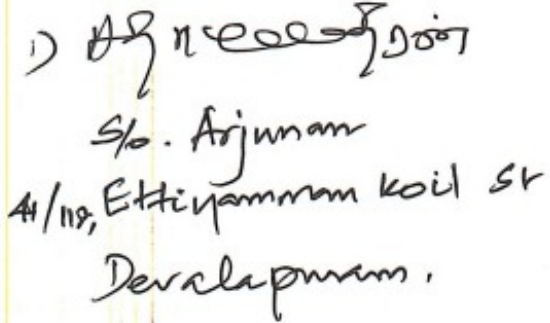 1)
S/o. Arjunan
41/118, Ettiyamman koil St
Devalapuram.